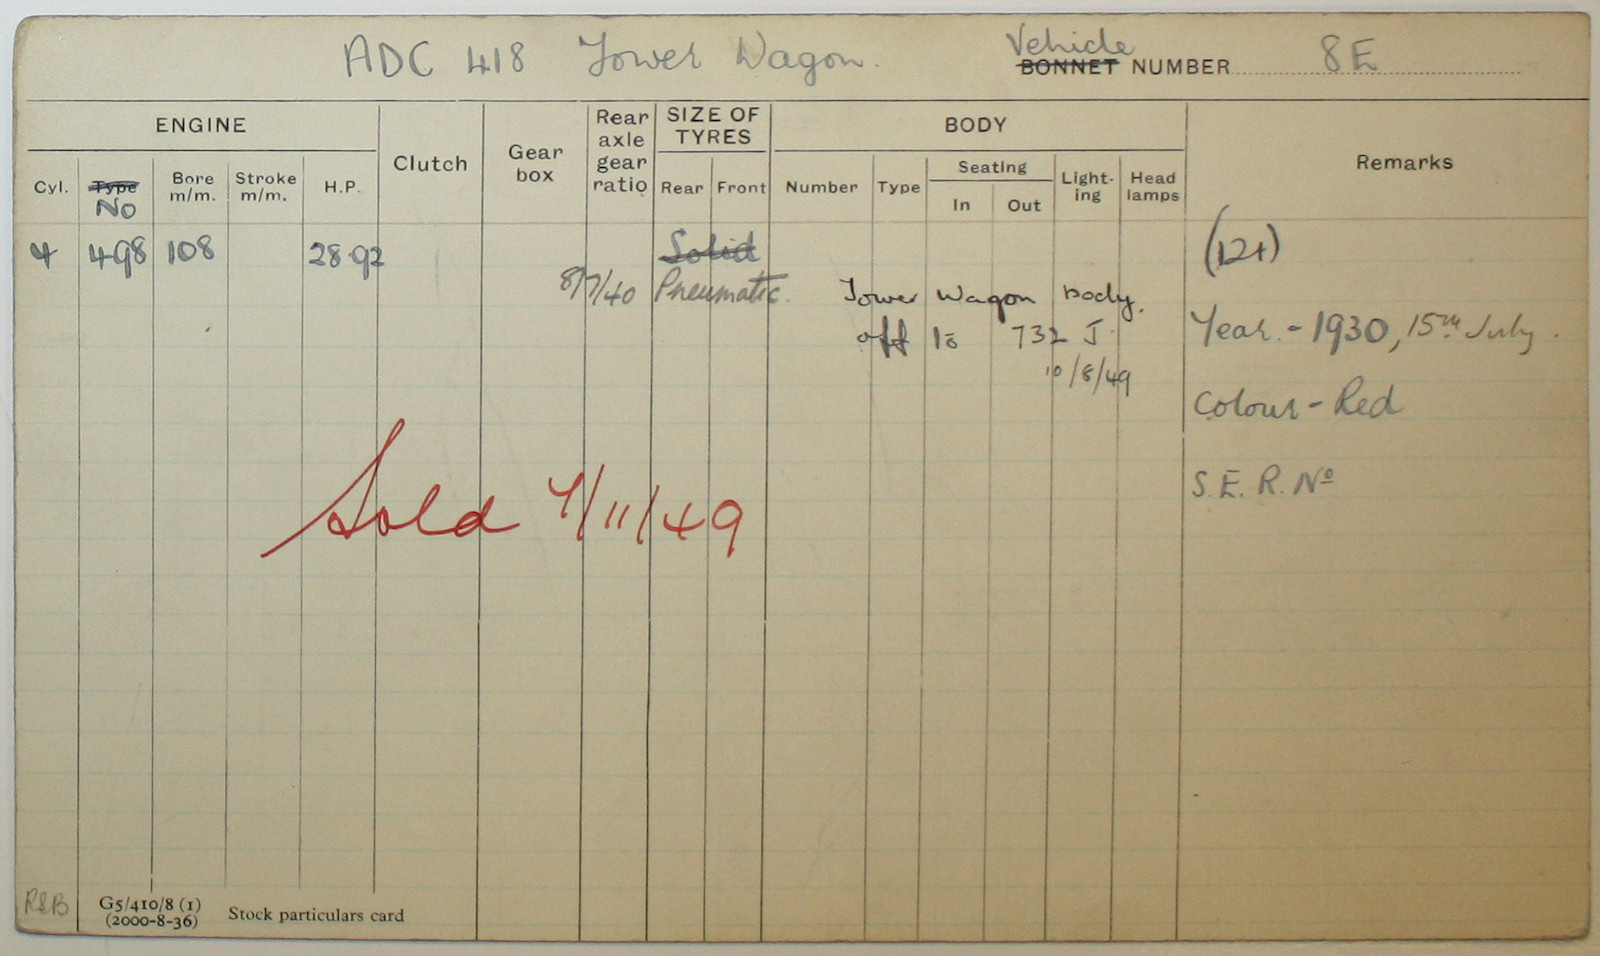 ADC 418 Tower Wagon.
Vehicle
BONNET NUMBER 8E
ENGINE
Clutch
Gear box
Rear axle gear ratio
SIZE OF TYRES
BODY
Remarks
Cyl.
Type
No
Bore m/m.
Stroke m/m.
H.P.
Rear
Front
Number
Type
Seating
In
Out
Light-ing
Head lamps
4 498 108 28.92 Solid
(12+)
8/7/40 Pneumatic.
Tower Wagon Body.
off to 732 J.
10/8/49
Year. - 1930, 15th July.
Colour - Red
S.E.R. No
Sold 7/11/49
R&B
G5/410/8 (1)
(2000-8-36)
Stock particulars card